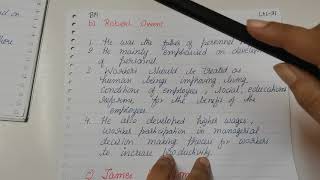 b) Robert Owen
1. He was the father of personnel
2. He mainly emphasised on development
of personnel.
3. Workers should be treated as
human beings improving living
conditions of employees, social, educational
reforms for the benefit of the
employees
4. He also developed higher wages,
worker participation in managerial
decision making for workers
to increase productivity.
c) James